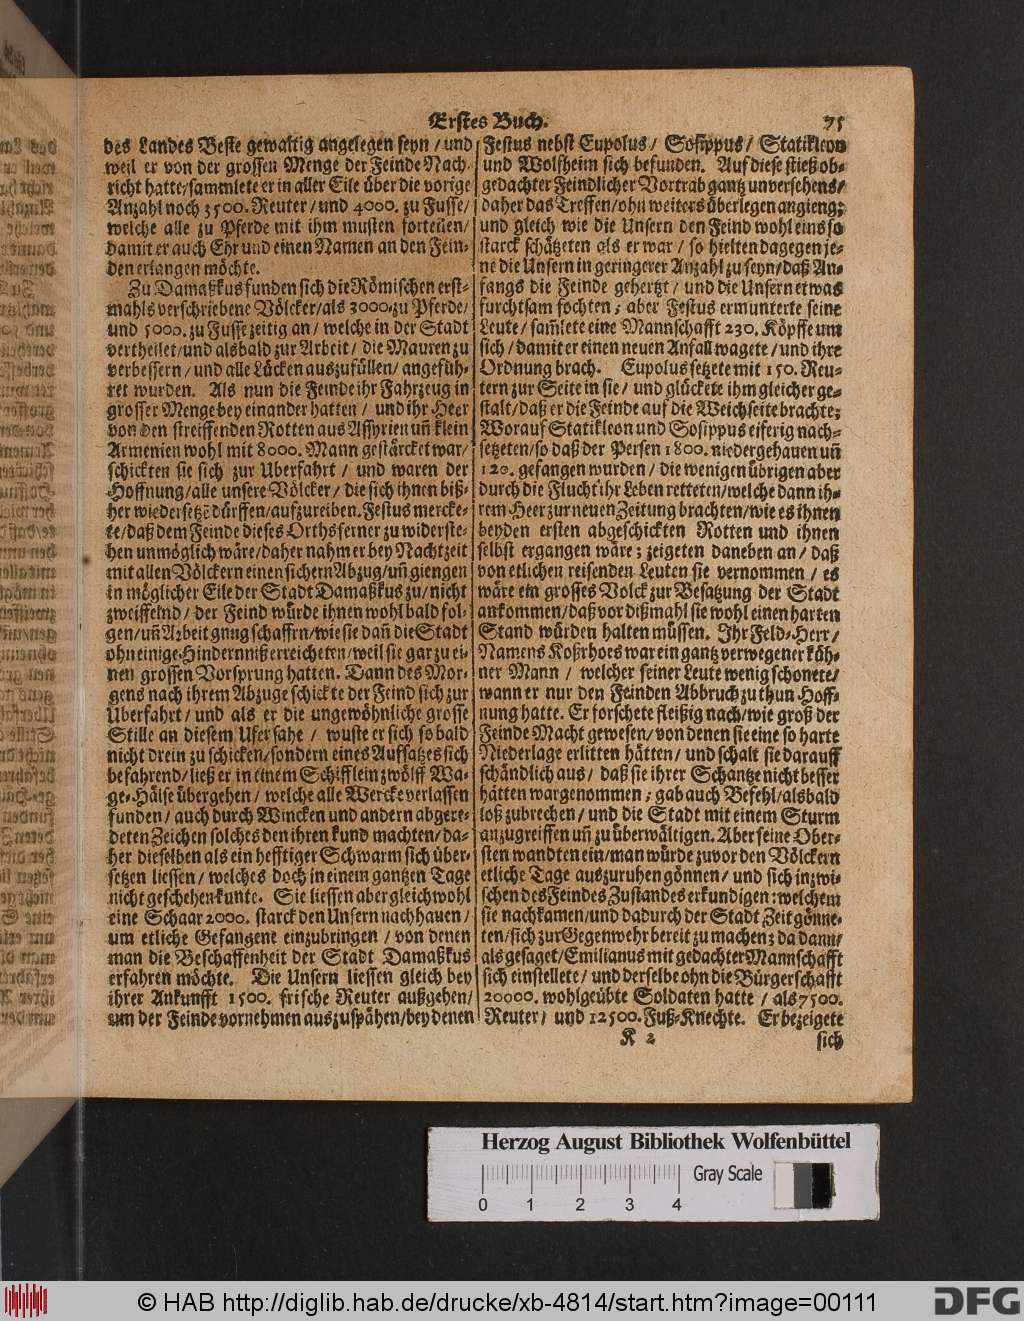 Erstes Buch. 75
des Landes Beste gewaltig angelegen seyn / und
weil er von der grossen Menge der Feinde Nach-
richt hatte/ sammlete er in aller Eile über die vorige
Anzahl noch 3500. Reuter/ und 4000. zu Fusse/
welche alle zu Pferde mit ihm musten forteilen/
damit er auch Ehr und einen Namen an den Fein-
den erlangen möchte.
Zu Damaßkus funden sich die Römischen erst-
mahls verschriebene Völcker/ als 3000. zu Pferde/
und 5000. zu Fusse zeitig an / welche in der Stadt
vertheilet/ und alsbald zur Arbeit / die Mauren zu
verbessern / und alle Lücken auszufüllen/ angefüh-
ret wurden. Als nun die Feinde ihr Fahrzeug in
grosser Menge bey einander hatten / und ihr Heer
von den streiffenden Rotten aus Assyrien uñ klein
Armenien wohl mit 8000. Mann gestärcket war/
schickten sie sich zur Uberfahrt / und waren der
Hoffnung/ alle unsere Völcker / die sich ihnen biß-
her wiedersetzẽ dürffen/ aufzureiben. Festus mercke-
te/ daß dem Feinde dieses Orths ferner zu widerste-
hen unmöglich wäre/ daher nahm er bey Nachtzeit
mit allen Völckern einen sichern Abzug/ uñ giengen
in möglicher Eile der Stadt Damaßkus zu/ nicht
zweiffelnd / der Feind würde ihnen wohl bald fol-
gen/ uñ Arbeit gnug schaffen/ wie sie dañ die Stadt
ohn einige Hinderniß erreicheten/ weil sie gar zu ei-
nen grossen Vorsprung hatten. Dann des Mor-
gens nach ihrem Abzuge schickte der Feind sich zur
Uberfahrt/ und als er die ungewöhnliche grosse
Stille an diesem Ufer sahe / wuste er sich so bald
nicht drein zu schicken/ sondern eines Aufsatzes sich
befahrend/ ließ er in einem Schifflein zwölff Wa-
ge-Hälse übergehen / welche alle Wercke verlassen
funden / auch durch Wincken und andern abgere-
deten Zeichen solches den ihren kund machten/ da-
her dieselben als ein hefftiger Schwarm sich über-
setzen liessen / welches doch in einem gantzen Tage
nicht geschehen kunte. Sie liessen aber gleichwohl
eine Schaar 2000. starck den Unsern nachhauen /
um etliche Gefangene einzubringen / von denen
man die Beschaffenheit der Stadt Damaßkus
erfahren möchte. Die Unsern liessen gleich bey
ihrer Ankunfft 1500. frische Reuter außgehen/
um der Feinde vornehmen auszuspähen/ bey denen
Festus nebst Eupolus / Sosippus / Statikleon
und Wolfheim sich befunden. Auf diese stieß ob-
gedachter Feindlicher Vortrab gantz unversehens/
daher das Treffen/ ohn weiters überlegen angieng;
und gleich wie die Unsern den Feind wohl eins so
starck schätzeten als er war / so hielten dagegen je-
ne die Unsern in geringerer Anzahl zu seyn/ daß An-
fangs die Feinde gehertzt / und die Unsern etwas
furchtsam fochten ; aber Festus ermunterte seine
Leute / sam̃lete eine Mannschafft 230. Köpffe um
sich / damit er einen neuen Anfall wagete / und ihre
Ordnung brach. Eupolus setzete mit 150. Reu-
tern zur Seite in sie / und glückete ihm gleicher ge-
stalt/ daß er die Feinde auf die Weichseite brachte;
Worauf Statikleon und Sosippus eiferig nach-
setzeten/ so daß der Persen 1800. niedergehauen uñ
120. gefangen wurden / die wenigen übrigen aber
durch die Flucht ihr Leben retteten/ welche dann ih-
rem Heer zur neuen Zeitung brachten/ wie es ihnen
beyden ersten abgeschickten Rotten und ihnen
selbst ergangen wäre ; zeigeten daneben an / daß
von etlichen reisenden Leuten sie vernommen / es
wäre ein grosses Volck zur Besatzung der Stadt
ankommen/ daß vor dißmahl sie wohl einen harten
Stand würden halten müssen. Ihr Feld-Herr /
Namens Koßrhoes war ein gantz verwegener küh-
ner Mann / welcher seiner Leute wenig schonete/
wann er nur den Feinden Abbruch zu thun Hoff-
nung hatte. Er forschete fleißig nach/ wie groß der
Feinde Macht gewesen/ von denen sie eine so harte
Niederlage erlitten hätten / und schalt sie darauff
schändlich aus / daß sie ihrer Schantze nicht besser
hätten wargenommen ; gab auch Befehl/ alsbald
loß zubrechen / und die Stadt mit einem Sturm
anzugreiffen uñ zu überwältigen. Aber seine Ober-
sten wandten ein/ man würde zuvor den Völckern
etliche Tage auszuruhen gönnen / und sich inzwi-
schen des Feindes Zustandes erkundigen: welchem
sie nachkamen/ und dadurch der Stadt Zeit gönne-
ten/ sich zur Gegenwehr bereit zu machen; da dann/
als gesaget/ Emilianus mit gedachter Mannschafft
sich einstellete / und derselbe ohn die Bürgerschafft
20000. wohlgeübte Soldaten hatte / als 7500.
Reuter / und 12500. Fuß-Knechte. Er bezeigete
K 2 sich
Herzog August Bibliothek Wolfenbüttel
Gray Scale
0 1 2 3 4
© HAB http://diglib.hab.de/drucke/xb-4814/start.htm?image=00111
DFG